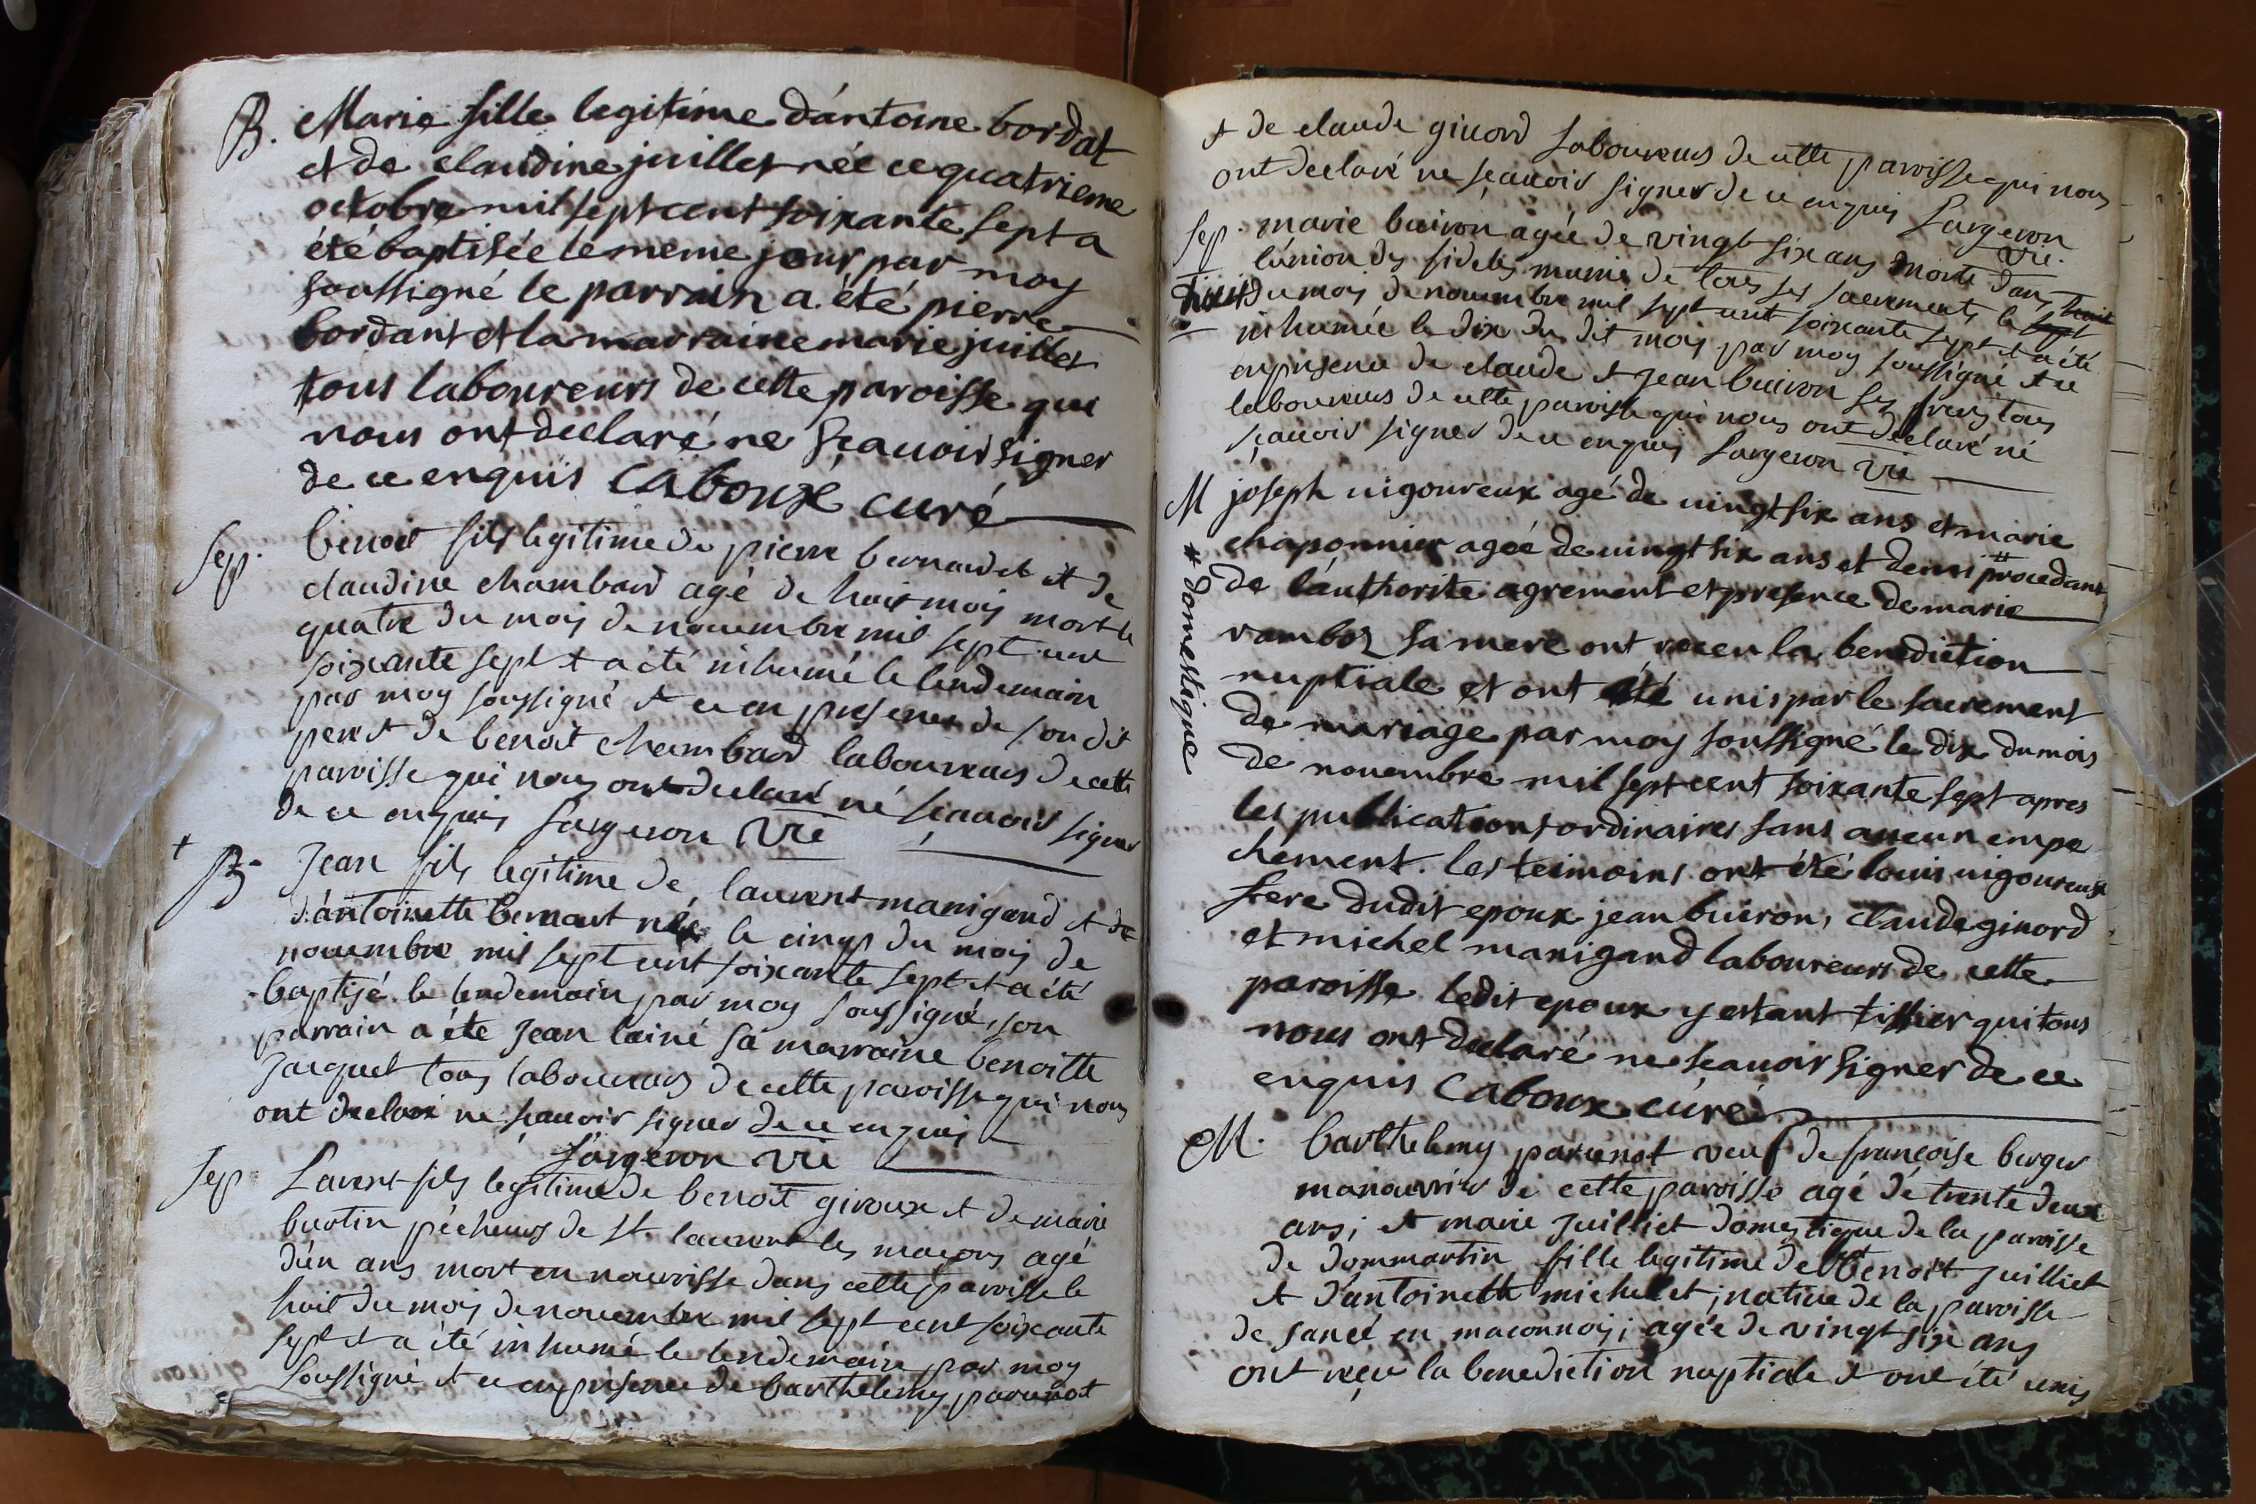 B. Marie fille legitime d'antoine bordat
et de claudine juillet née ce quatrieme
octobre mil sept cent soixante sept a
été baptisée le meme jour par moy
soussigné le parrain a été pierre
bordant et la marraine marie juillet
tous laboureurs de cette paroisse qui
nous ont declaré ne sçauoir signer
de ce enquis Caboux curé
Sep. benoit fils legitime de pierre bernardet et de
claudine chambard agé de huit mois mort le
quatre du mois de nouembre mil sept cent
soixante sept et a été inhumé le lendemain
par moy soussigné et ce en presence de son dit
pere et de benoit chambard laboureurs de cette
paroisse qui nous ont declaré né sçauoir signer
de ce enquis Sargeron vic
+
B. Jean fils legitime de laurent manigand et de
d'antoinette bernast née le cinq du mois de
nouembre mil sept cent soixante sept et a été
baptisé le lendemain par moy soussigné, son
parrain a éte Jean lainé sa marraine benoitte
Jacquet tous laboureurs de cette paroisse qui nous
ont declaré ne sçauoir signer de ce enquis
Sargeron vic
Sep Laurent fils legitime de benoit giroux et de marie
burtin pécheurs de St. laurent les macons agé
d'un ans mort en nourrisse dans cette paroisse le
huit du mois de nouembre mil sept cent soixante
sept et a été inhumé le lendemain par moy
soussigné et ce en presence de barthelemy parunot
et de claude giuord laboureurs de cette paroisse qui nous
ont declaré ne sçauoir signer de ce enquis Sargeron
vic.
Sep. marie buiron agée de vingt six ans morte dans
l'union des fideles munie de tous ses sacrements le sept huit
huit du mois de nouembre mil sept cent soixante sept et a été
inhumée le dix du dit mois par moy soussigné et ce
en presence de claude et Jean buiron ses freres tous
laboureurs de cette paroisse qui nous ont declaré né
sçauoir signer de ce enquis Sargeron vic
M joseph uigoureux agé de uingt six ans et marie
chaponnier agée de uingt six ans et demi # procedant
# domestique
de l'authorite agrement et presence de marie
ramboz sa mere ont receu la benediction
nuptiale et ont été unis par le sacrement
de mariage par moy soussigné le dix du mois
de nouembre mil sept cent soixante sept apres
les publications ordinaires sans aucun empe
chement. les teimoins ont été louis uigoureux
frere dudit epoux jean buiron, claude giuord
et michel manigand laboureurs de cette
paroisse ledit epoux y estant tissier qui tous
nous ont declaré ne sçauoir signer de ce
enquis Caboux curé
M. barthelemy parunot veuf de françoise berger
manouvrier de cette paroisse agé de trente deux
ans; et marie Juilliet domestique de la paroisse
de dommartin fille legitime de benoit Juilliet
et d'antoinette michelet; natiue de la paroisse
de sancé en maconnois; agée de vingt six ans
ont reçu la benediction nuptiale et ont été unis